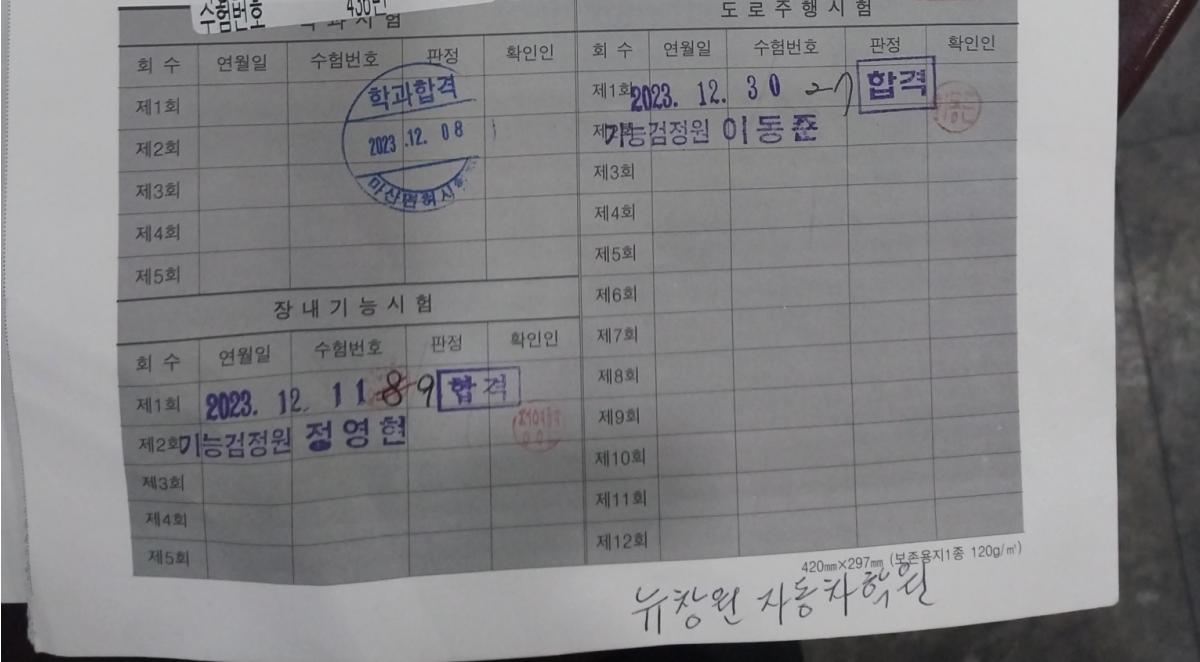 수험번호
도로주행시험
회 수 연월일 수험번호 판정 확인인
제1회
제2회
제3회
제4회
제5회
학과합격
2023.12.08
장내기능시험
회 수 연월일 수험번호 판정 확인인
제1회 2023. 12. 11 8 9 합격
제2회 기능검정원 정영현
제3회
제4회
제5회
회 수 연월일 수험번호 판정 확인인
제1회 2023. 12. 30 27 합격
기능검정원 이동준
제3회
제4회
제5회
제6회
제7회
제8회
제9회
제10회
제11회
제12회
420㎜×297㎜ (보존용지1종 120g/㎡)
뉴창원 자동차학원